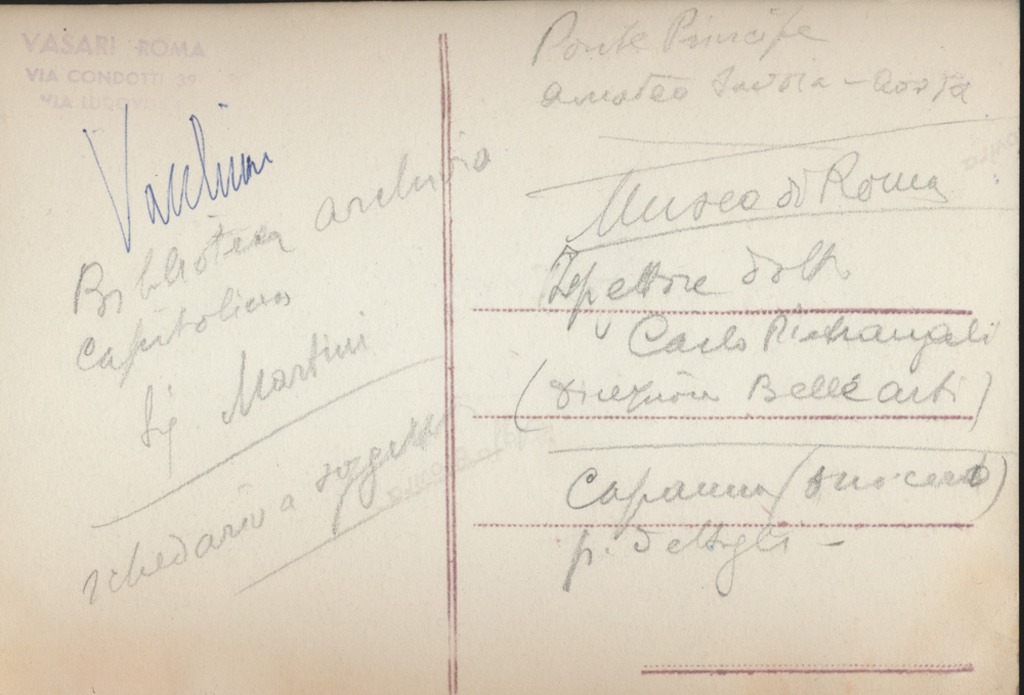 VASARI ROMA
VIA CONDOTTI 39
VIA
Biblioteca archivio
capitolina
Sig. Martini
schedario a soggetto
Ponte Principe
Amedeo Savoia - Aosta
Museo di Roma
Ispettore dott.
Carlo Pietrangeli
(Direzione Belle arti)
Capanna (Innocenti)
p. dettagli -